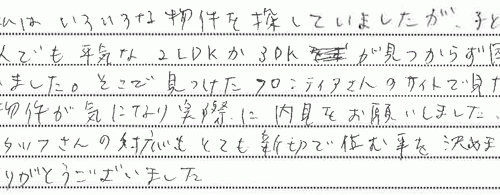 はいろいろな物件を探していましたが、子ど
でも平気な2LDKか3DKが見つからず困
ました。そこで見つけたフロンティアさんのサイトで見た
物件が気になり実際に内見をお願いしました。
タッフさんの対応もとても親切で住む事を決めま
りがとうございました